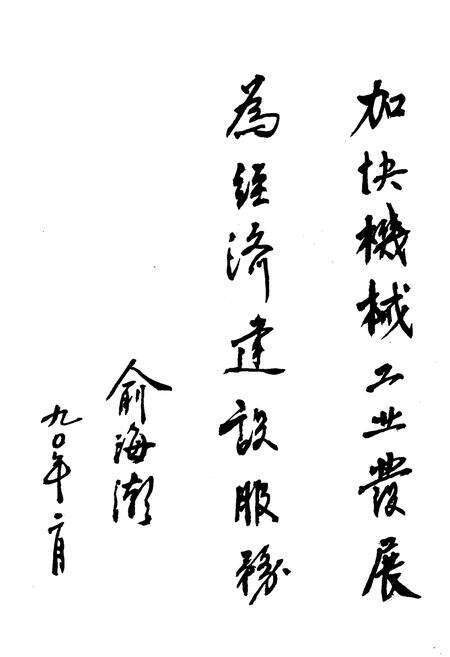 加快機械工业發展
為經济建設服務
俞海潮
九〇年二月